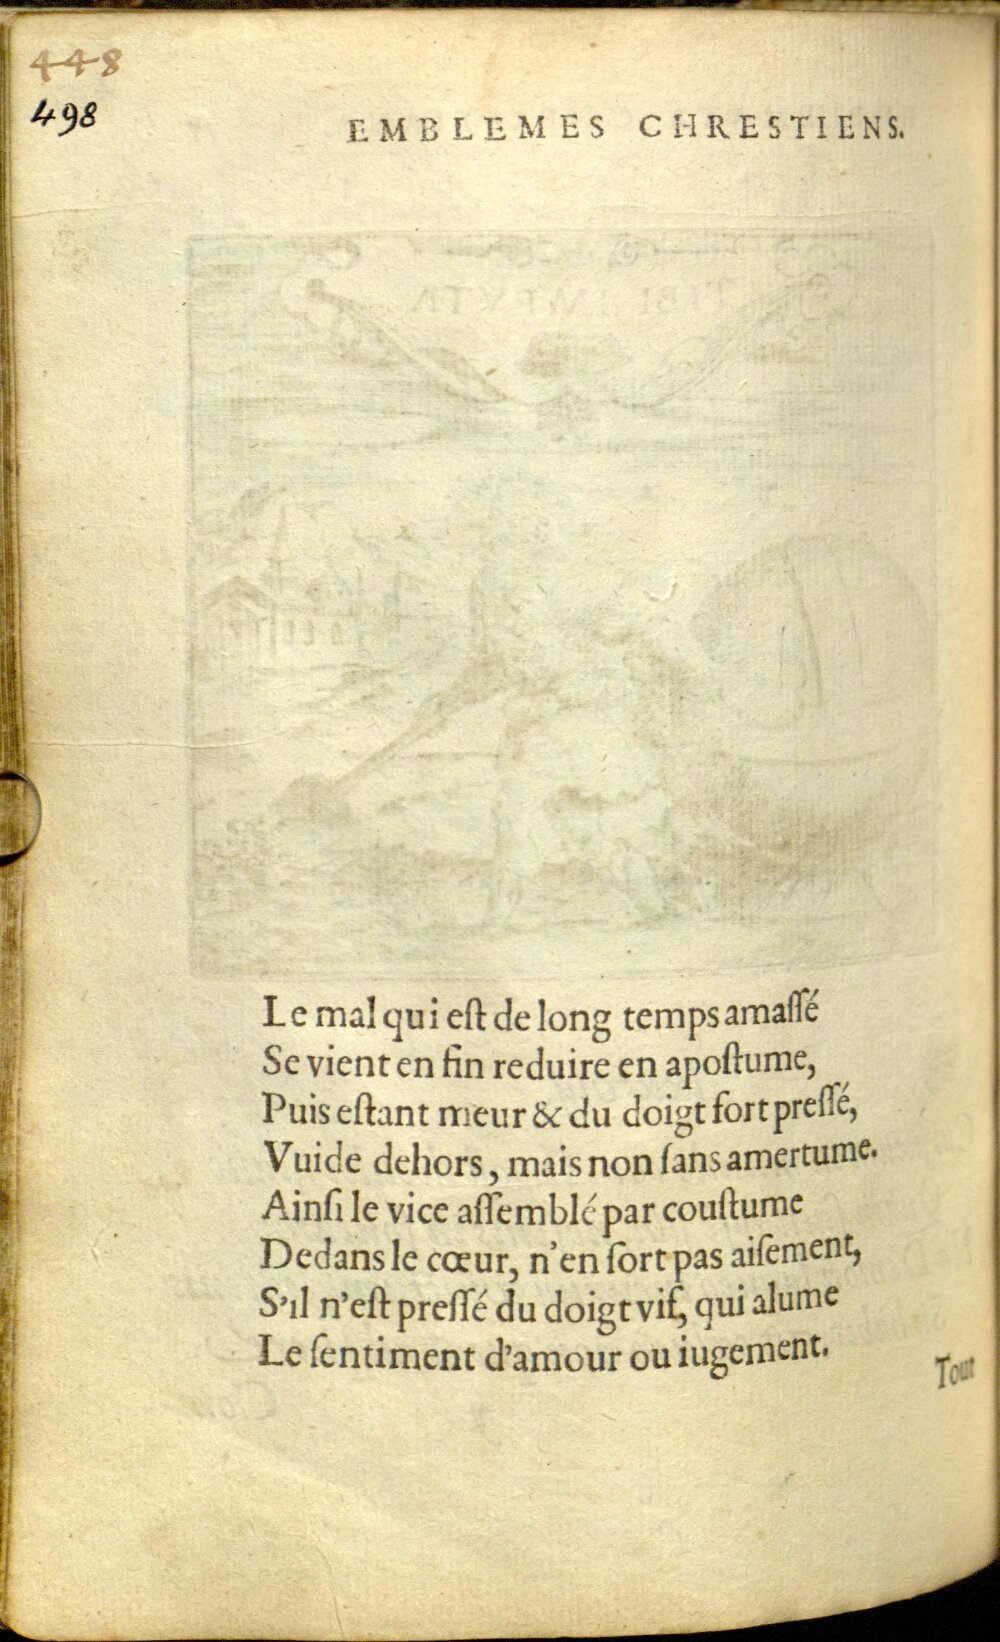 448
498
EMBLEMES CHRESTIENS.
Le mal qui eſt de long temps amaſſé
Se vient en fin reduire en apoſtume,
Puis eſtant meur & du doigt fort preſſé,
Vuide dehors, mais non ſans amertume.
Ainſi le vice aſſemblé par couſtume
Dedans le cœur, n'en ſort pas aiſement,
S'il n'eſt preſſé du doigt vif, qui alume
Le ſentiment d'amour ou iugement.
Tout